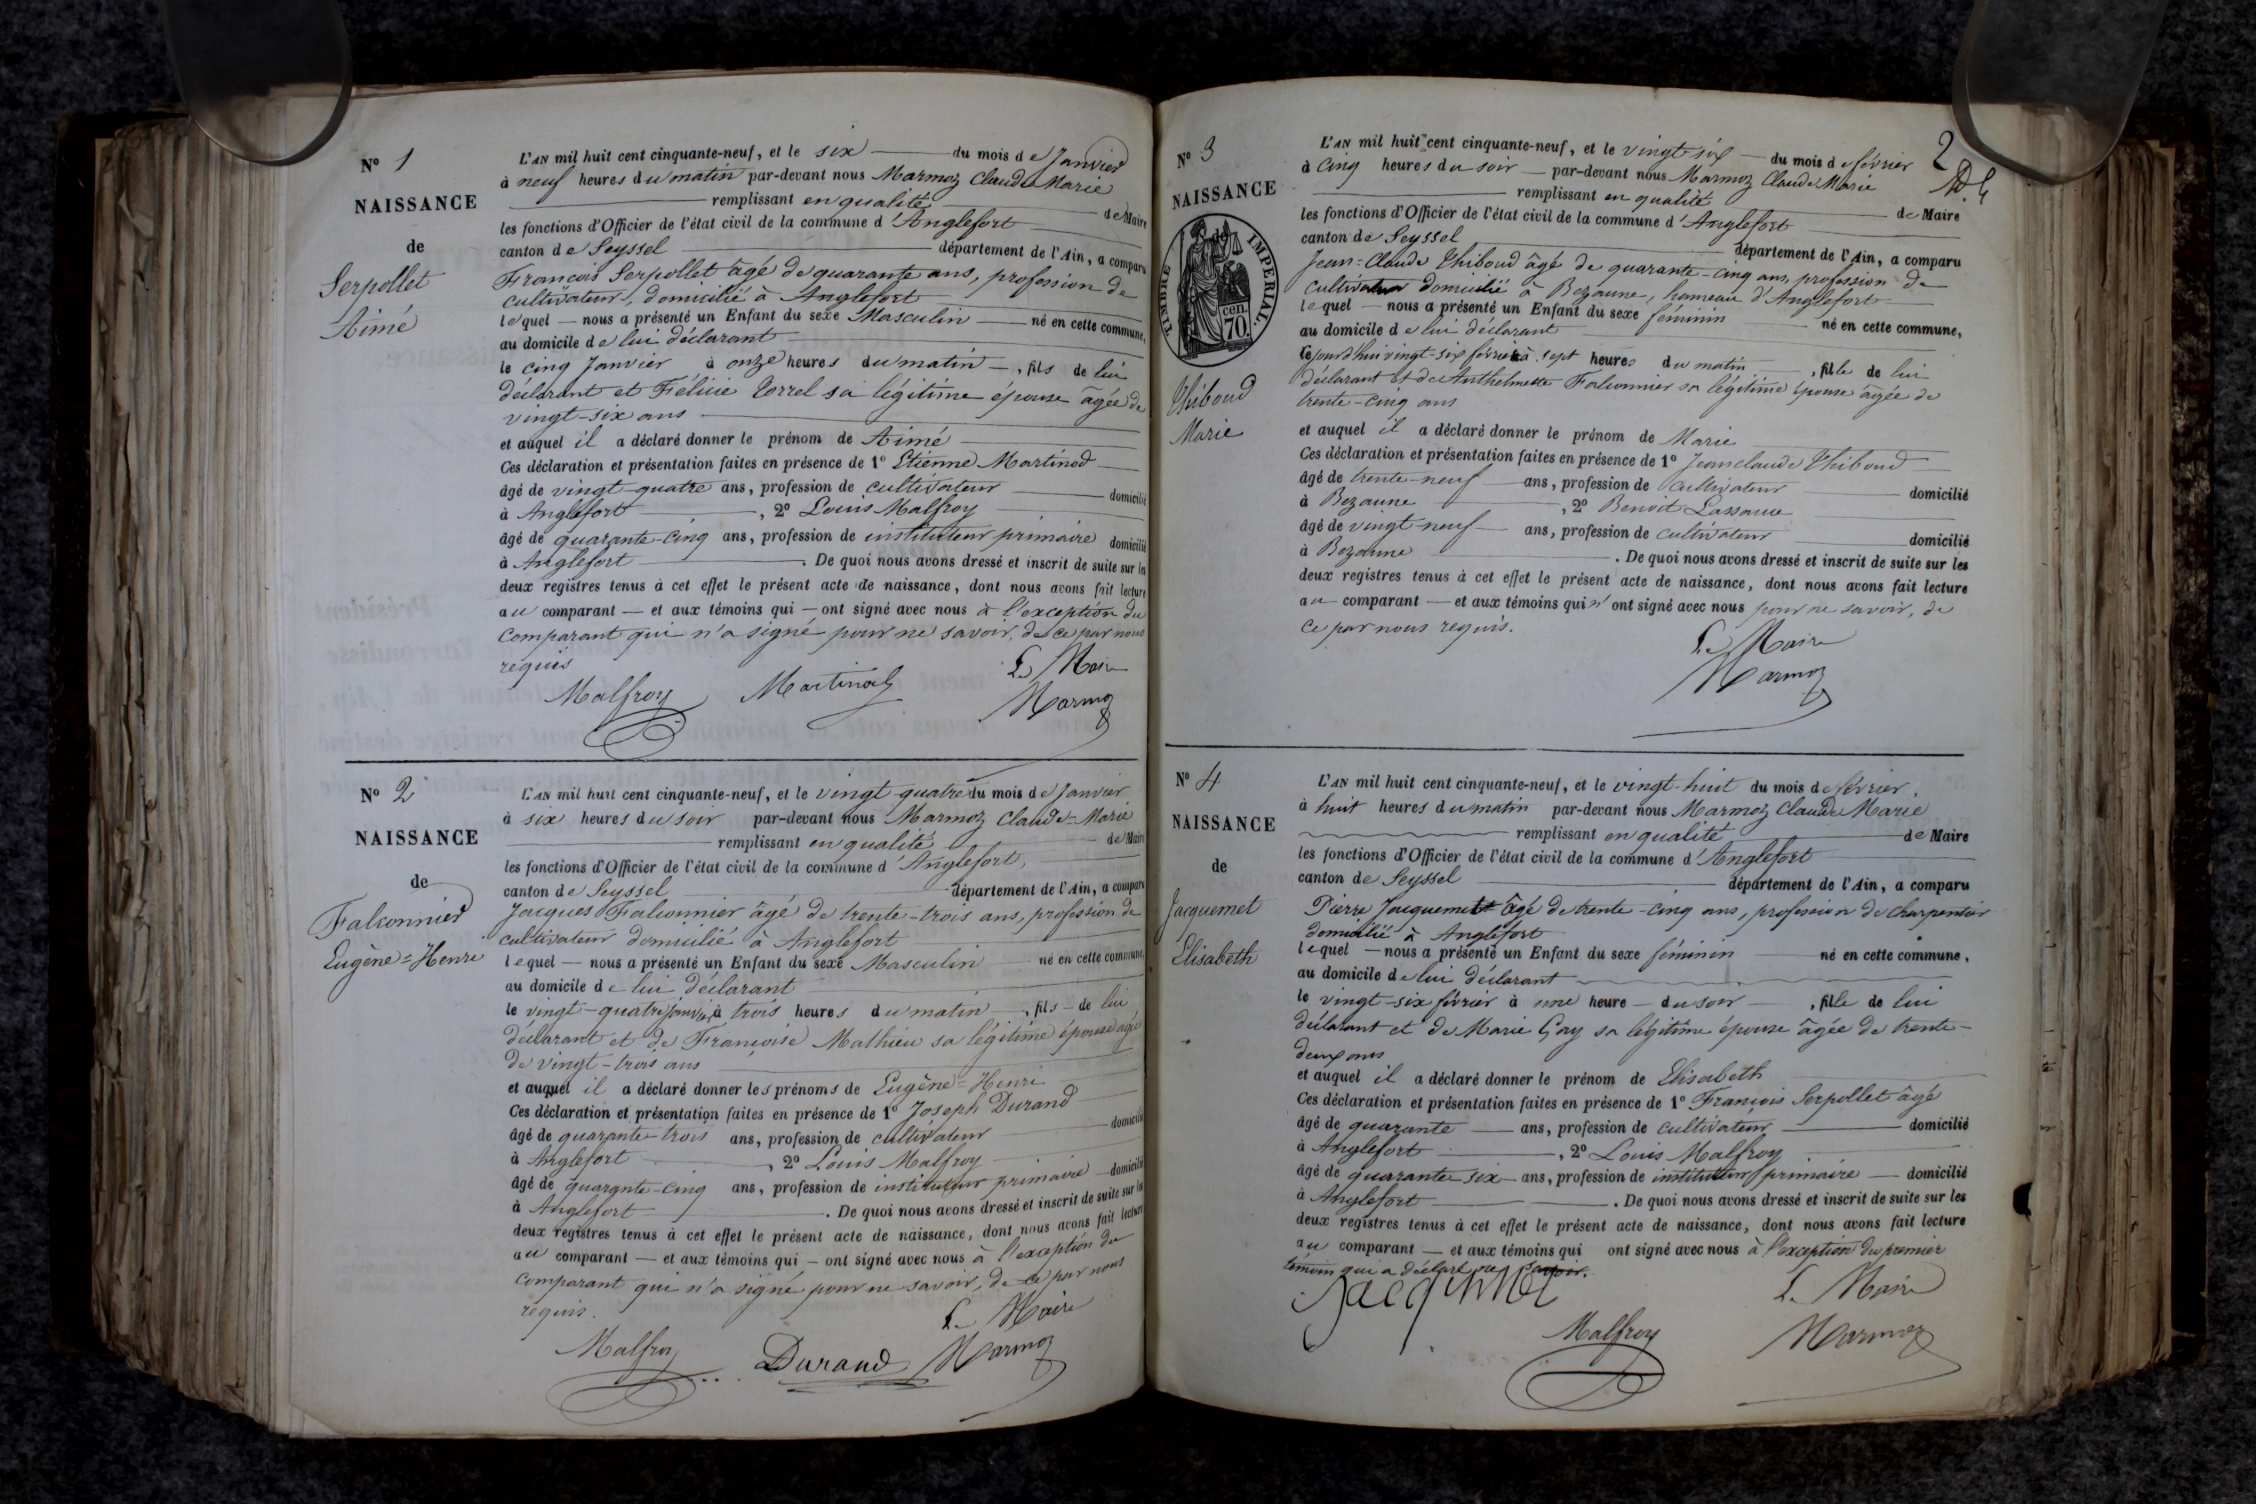 N° 1
NAISSANCE
de
Serpollet
Aimé
L'AN mil huit cent cinquante-neuf, et le six du mois de Janvier
à neuf heures du matin par-devant nous Marmoz Claude Marie
remplissant en qualité de Maire
les fonctions d'Officier de l'état civil de la commune d'Anglefort
canton de Seyssel département de l'Ain, a comparu
François Serpollet âgé de quarante ans, profession de
cultivateur, domicilié à Anglefort
lequel nous a présenté un Enfant du sexe Masculin né en cette commune,
au domicile de lui déclarant
le cinq Janvier à onze heures du matin, fils de lui
déclarant et Félicie sa légitime épouse âgée de
vingt-six ans
et auquel il a déclaré donner le prénom de Aimé
Ces déclaration et présentation faites en présence de 1° Etienne Martinod
âgé de vingt-quatre ans, profession de cultivateur domicilié
à Anglefort, 2° Louis Malfroy
âgé de quarante-cinq ans, profession de instituteur primaire domicilié
à Anglefort. De quoi nous avons dressé et inscrit de suite sur les
deux registres tenus à cet effet le présent acte de naissance, dont nous avons fait lecture
au comparant et aux témoins qui ont signé avec nous à l'exception du
comparant qui n'a signé pour ne savoir, de ce par nous
requis
Le Maire
Malfroy Martinod Marmoz
N° 2
NAISSANCE
de
Falconnier
Eugène=Henri
L'AN mil huit cent cinquante-neuf, et le vingt quatre du mois de Janvier
à six heures du soir par-devant nous Marmoz Claude-Marie
remplissant en qualité de Maire
les fonctions d'Officier de l'état civil de la commune d'Anglefort,
canton de Seyssel département de l'Ain, a comparu
Jacques Falconnier âgé de trente-trois ans, profession de
cultivateur domicilié à Anglefort
lequel nous a présenté un Enfant du sexe Masculin né en cette commune,
au domicile de lui déclarant
le vingt-quatre janvier à trois heures du matin, fils de lui
déclarant et de Françoise Mathieu sa légitime épouse âgée
de vingt-trois ans
et auquel il a déclaré donner les prénoms de Eugène=Henri
Ces déclaration et présentation faites en présence de 1° Joseph Durand
âgé de quarante-trois ans, profession de cultivateur domicilié
à Anglefort, 2° Louis Malfroy
âgé de quarante-cinq ans, profession de instituteur primaire domicilié
à Anglefort. De quoi nous avons dressé et inscrit de suite sur les
deux registres tenus à cet effet le présent acte de naissance, dont nous avons fait lecture
au comparant et aux témoins qui ont signé avec nous à l'exception du
comparant qui n'a signé pour ne savoir, de ce par nous
requis.
Le Maire
Malfroy Durand Marmoz
2
N° 3
NAISSANCE
de
TIMBRE IMPERIAL.
cen.
70.
Thiboud
Marie
L'AN mil huit cent cinquante-neuf, et le vingt six du mois de février
à cinq heures du soir par-devant nous Marmoz Claude Marie
remplissant en qualité de Maire
les fonctions d'Officier de l'état civil de la commune d'Anglefort
canton de Seyssel département de l'Ain, a comparu
Jean=Claude Thiboud âgé de quarante-cinq ans, profession de
cultivateur domicilié à Bezonne, hameau d'Anglefort
lequel nous a présenté un Enfant du sexe féminin né en cette commune,
au domicile de lui déclarant
cejourd'hui vingt-six février à sept heures du matin, fille de lui
déclarant et de Anthelmette Falconnier sa légitime épouse âgée de
trente-cinq ans
et auquel il a déclaré donner le prénom de Marie
Ces déclaration et présentation faites en présence de 1° Jean claude Thiboud
âgé de trente-neuf ans, profession de cultivateur domicilié
à Bezonne, 2° Benoit Lassauce
âgé de vingt-neuf ans, profession de cultivateur domicilié
à Bezonne. De quoi nous avons dressé et inscrit de suite sur les
deux registres tenus à cet effet le présent acte de naissance, dont nous avons fait lecture
au comparant et aux témoins qui n'ont signé avec nous pour ne savoir, de
ce par nous requis.
Le Maire
Marmoz
N° 4
NAISSANCE
de
Jacquemet
Elisabeth
L'AN mil huit cent cinquante-neuf, et le vingt-huit du mois de février,
à huit heures du matin par-devant nous Marmoz Claude Marie
remplissant en qualité de Maire
les fonctions d'Officier de l'état civil de la commune d'Anglefort
canton de Seyssel département de l'Ain, a comparu
Pierre Jacquemet âgé de trente-cinq ans, profession de charpentier
domicilié à Anglefort
lequel nous a présenté un Enfant du sexe féminin né en cette commune,
au domicile de lui déclarant
le vingt-six février à une heure du soir, fille de lui
déclarant et de Marie Gay sa légitime épouse âgée de trente-
deux ans
et auquel il a déclaré donner le prénom de Elisabeth
Ces déclaration et présentation faites en présence de 1° François Serpollet âgé
âgé de quarante ans, profession de cultivateur domicilié
à Anglefort, 2° Louis Malfroy
âgé de quarante six ans, profession de instituteur primaire domicilié
à Anglefort. De quoi nous avons dressé et inscrit de suite sur les
deux registres tenus à cet effet le présent acte de naissance, dont nous avons fait lecture
au comparant et aux témoins qui ont signé avec nous à l'exception du premier
témoin qui a déclaré ne savoir.
Jacquemet Le Maire
Malfroy Marmoz